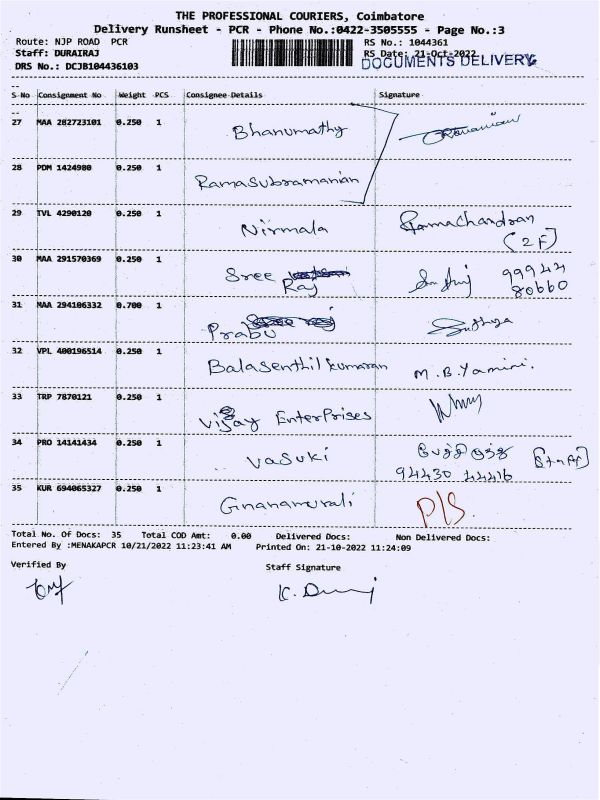 THE PROFESSIONAL COURIERS, Coimbatore
Delivery Runsheet - PCR - Phone No.:0422-3505555 - Page No.:3
Route: NJP ROAD PCR RS No.: 1044361
Staff: DURAIRAJ RS Date: 21-Oct-2022
DRS No.: DCJB104436103 DOCUMENTS DELIVERY
S No Consignment No Weight PCS Consignee Details Signature
27 MAA 282723101 0.250 1 Bhanumathy
28 PDM 1424980 0.250 1 Ramasubramanian
29 TVL 4290120 0.250 1 Nirmala Ramachandran
(2F)
30 MAA 291570369 0.250 1 Sree Raj 99944
80660
31 MAA 294106332 0.700 1 Prabu
32 VPL 400196514 0.250 1 Balasenthilkumaran M.B.Yamini.
33 TRP 7870121 0.250 1 Vijay Enterprises
34 PRO 14141434 0.250 1 Vasuki [Staff]
94430 44416
35 KUR 694065327 0.250 1 Gnanamurali P/S
Total No. Of Docs: 35 Total COD Amt: 0.00 Delivered Docs: Non Delivered Docs:
Entered By :MENAKAPCR 10/21/2022 11:23:41 AM Printed On: 21-10-2022 11:24:09
Verified By Staff Signature